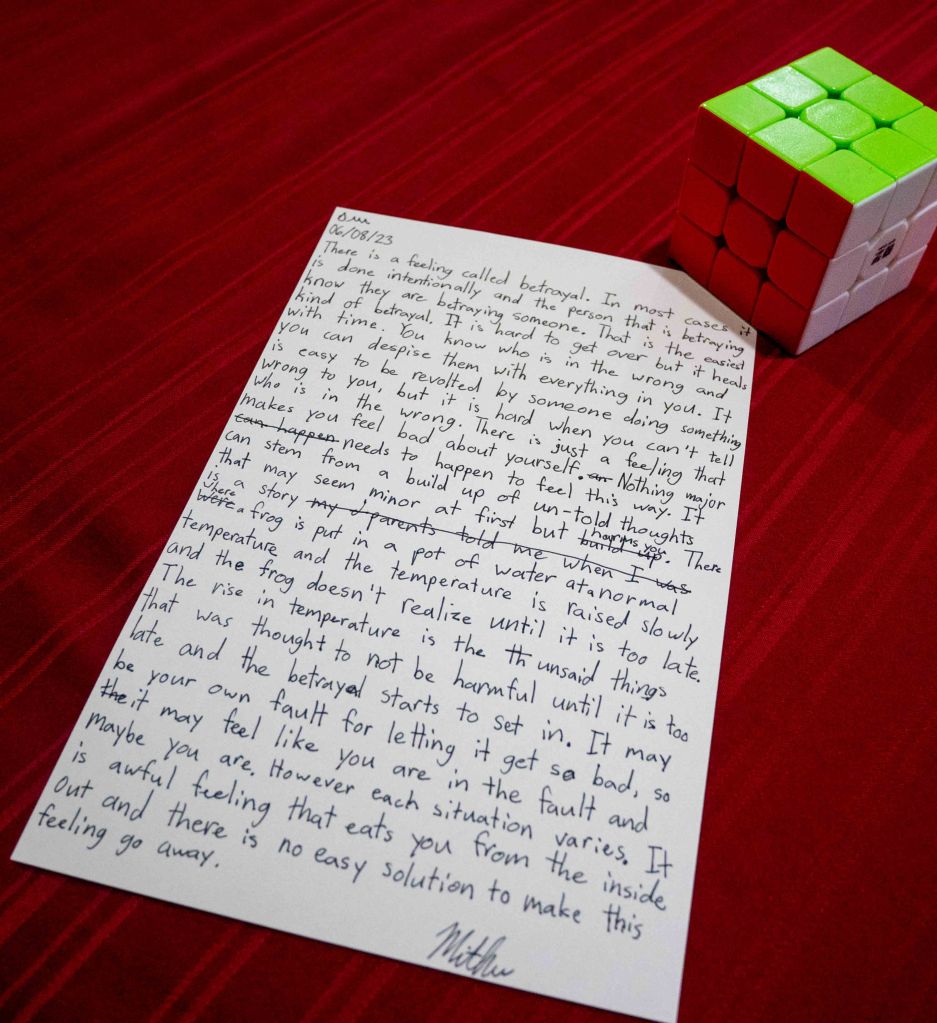 06/08/23
There is a feeling called betrayal. In most cases it
is done intentionally and the person that is betraying
know they are betraying someone. That is the easiest
kind of betrayal. It is hard to get over but it heals
with time. You know who is in the wrong and
you can despise them with everything in you. It
is easy to be revolted by someone doing something
wrong to you, but it is hard when you can't tell
who is in the wrong. There is just a feeling that
makes you feel bad about yourself. an Nothing major
can happen needs to happen to feel this way. It
can stem from a build up of un-told thoughts
that may seem minor at first but build up harms you. There
is a story my parents told me when I was
were where a frog is put in a pot of water at a normal
temperature and the temperature is raised slowly
and the frog doesn't realize until it is too late.
The rise in temperature is the th unsaid things
that was thought to not be harmful until it is too
late and the betrayal starts to set in. It may
be your own fault for letting it get so bad, so
the it may feel like you are in the fault and
maybe you are. However each situation varies. It
is awful feeling that eats you from the inside
out and there is no easy solution to make this
feeling go away.
Mithu